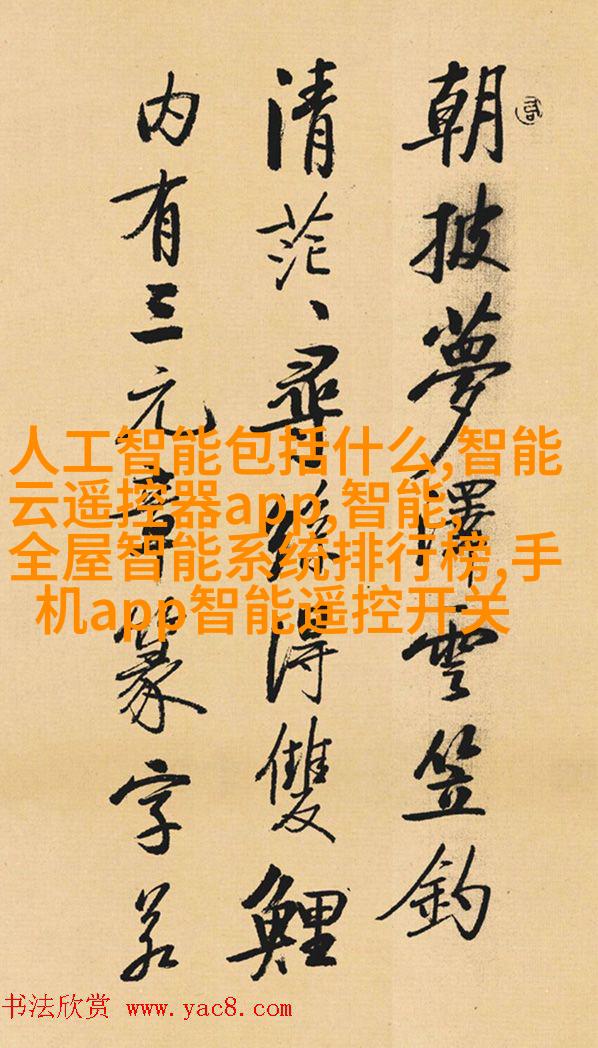 朝披夢澤雲笠釣
清茫、尋絲得雙鯉
内有三元章篆字若
人工智能包括什么,智能
云遥控器app,智能,
全屋智能系统排行榜,手
机app智能遥控开关
书法欣赏 www.yac8.com